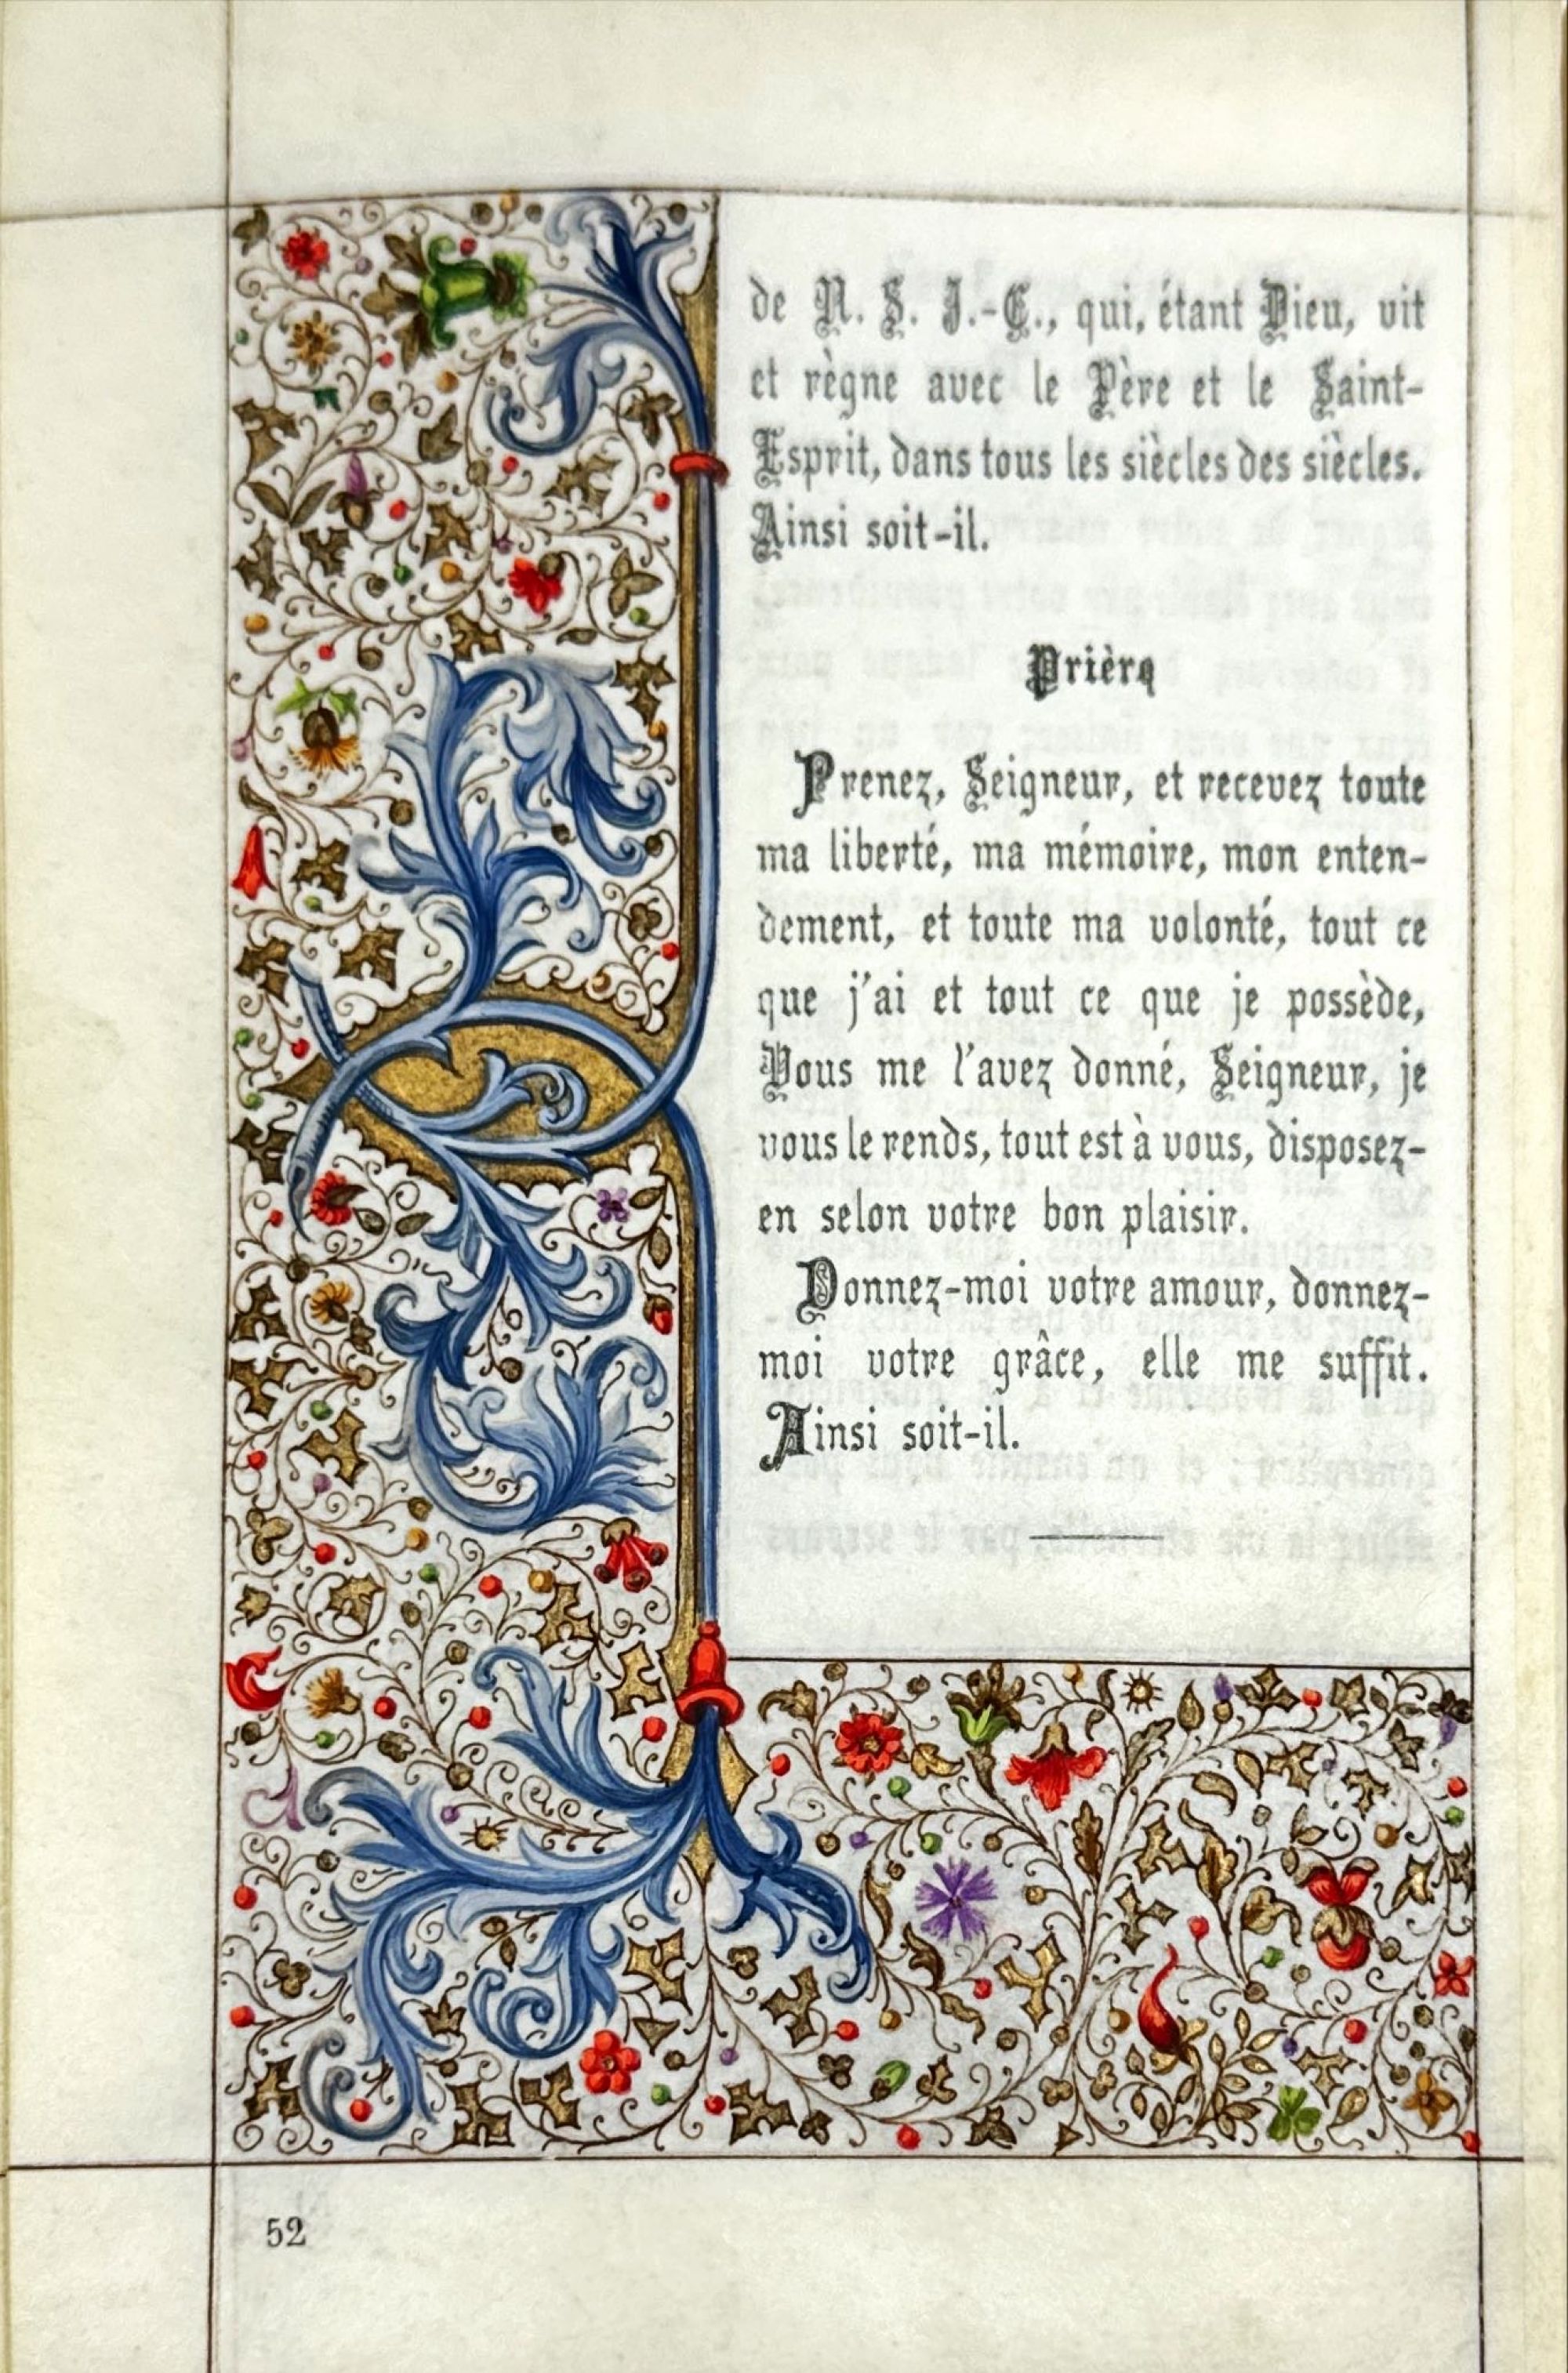 de N. S. J.-C., qui, étant Dieu, vit
et règne avec le Père et le Saint-
Esprit, dans tous les siècles des siècles.
Ainsi soit-il.
Prière
Prenez, Seigneur, et recevez toute
ma liberté, ma mémoire, mon enten-
dement, et toute ma volonté, tout ce
que j'ai et tout ce que je possède,
Vous me l'avez donné, Seigneur, je
vous le rends, tout est à vous, disposez-
en selon votre bon plaisir.
Donnez-moi votre amour, donnez-
moi votre grâce, elle me suffit.
Ainsi soit-il.
52